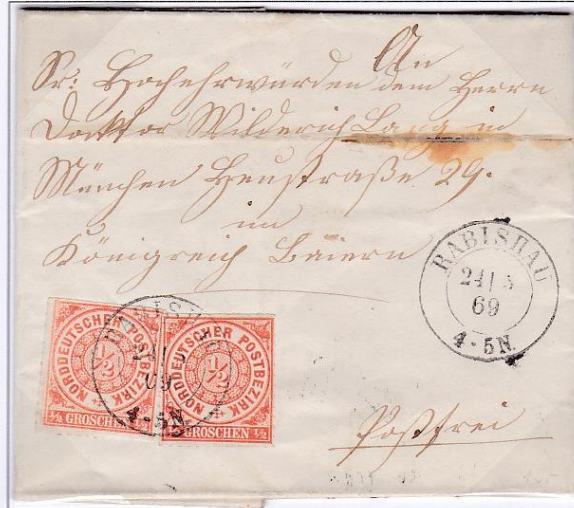 An
Sr: Hochehrwürden dem Herrn
Doktor Wilderich Lang in
München Heustraße 29.
im
Königreich Baiern
RABISHAU
24/5
69
4-5N.
RABISHAU
24/5
69
4-5N.
NORDDEUTSCHER POSTBEZIRK
1/2
1/2 GROSCHEN 1/2
NORDDEUTSCHER POSTBEZIRK
1/2
1/2 GROSCHEN 1/2
Postfrei